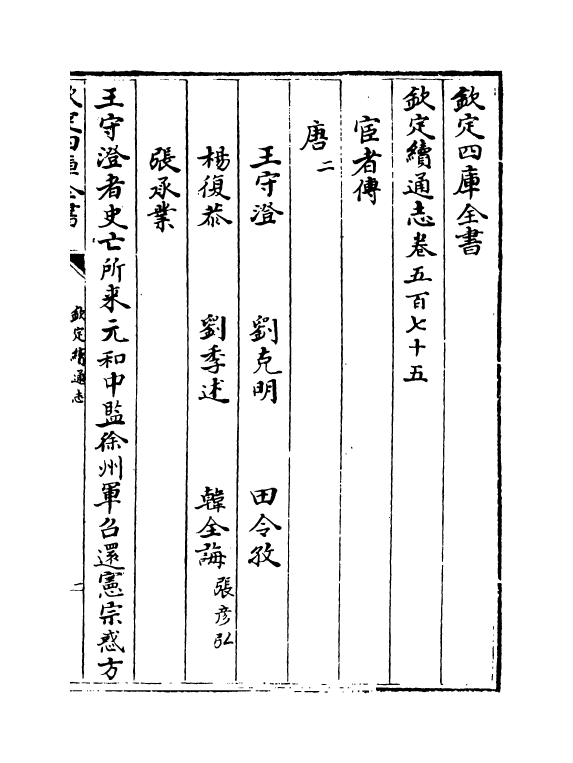 欽定四庫全書
欽定續通志卷五百七十五
宦者傳
唐二
王守澄 劉克明 田令孜
楊復恭 劉季述 韓全誨張彦弘
張承業
王守澄者史亡所来元和中監徐州軍召還憲宗惑方
欽定四庫全書 欽定續通志